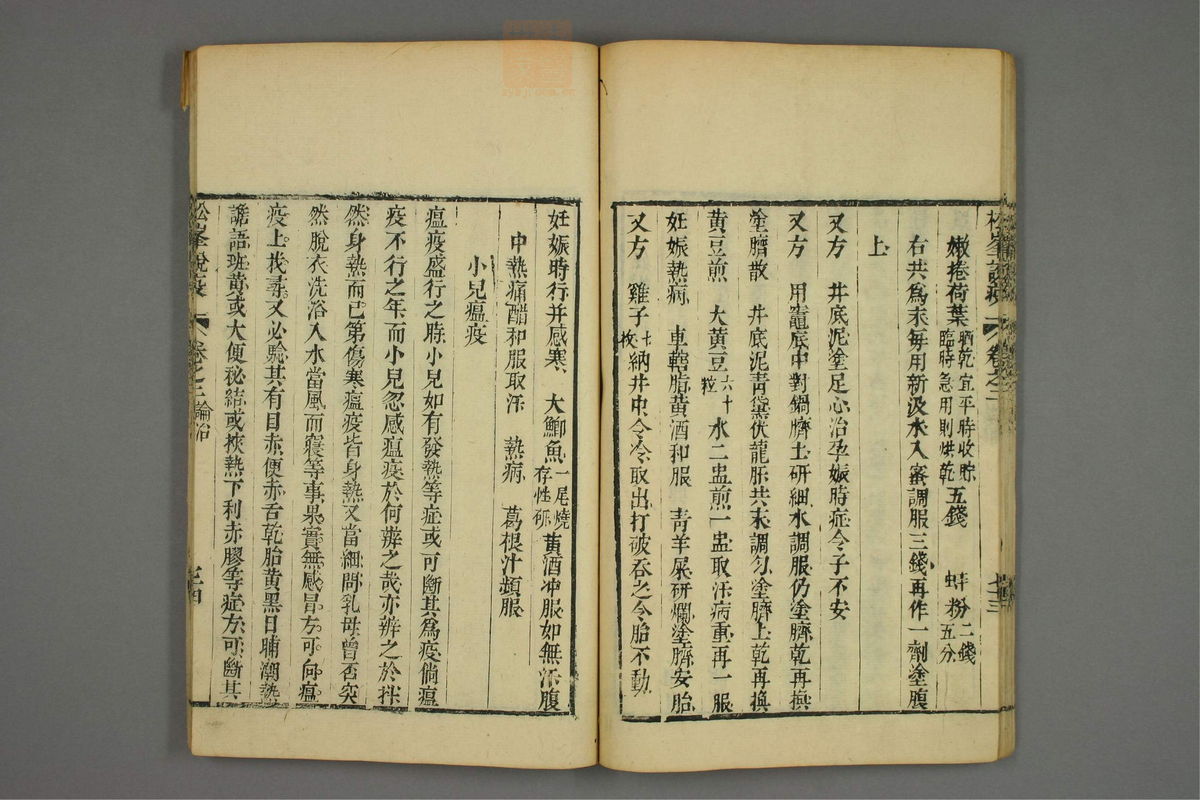 松峯說疫 卷之二 七十三
嫩捲荷葉 晒乾宜平時收貯臨時急用則烘乾 五錢 蚌粉 二錢五分
右共爲末每用新汲水入蜜調服三錢再作一劑塗腹
上
又方 井底泥塗足心治孕娠時症令子不安
又方 用竈底中對鍋臍土研細水調服仍塗臍乾再換
塗臍散 井底泥青黛伏龍肝共末調勻塗臍上乾再換
黃豆煎 大黃豆 六十粒 水二盅煎一盅取汗病重再一服
妊娠熱病 車轄脂黃酒和服 青羊屎研爛塗臍安胎
又方 雞子 七枚 納井中令冷取出打破吞之令胎不動
妊娠時行并感寒 大鯽魚 一尾燒存性研 黃酒冲服如無汗腹
中熱痛醋和服取汗 熱病 葛根汁頻服
小兒瘟疫
瘟疫盛行之時小兒如有發熱等症或可斷其爲疫倘瘟
疫不行之年而小兒忽感瘟疾於何辨之哉亦辨之於抖
然身熱而已第傷寒瘟疫皆身熱又當細問乳母曾否突
然脫衣洗浴入水當風而寢等事果實無感冒方可向瘟
疫上找尋又必驗其有目赤便赤舌乾胎黃黑日晡潮熱
譫語斑黃或大便秘結或挾熱下利赤膠等症方可斷其
松峯說疫 卷之二 論治 七十四